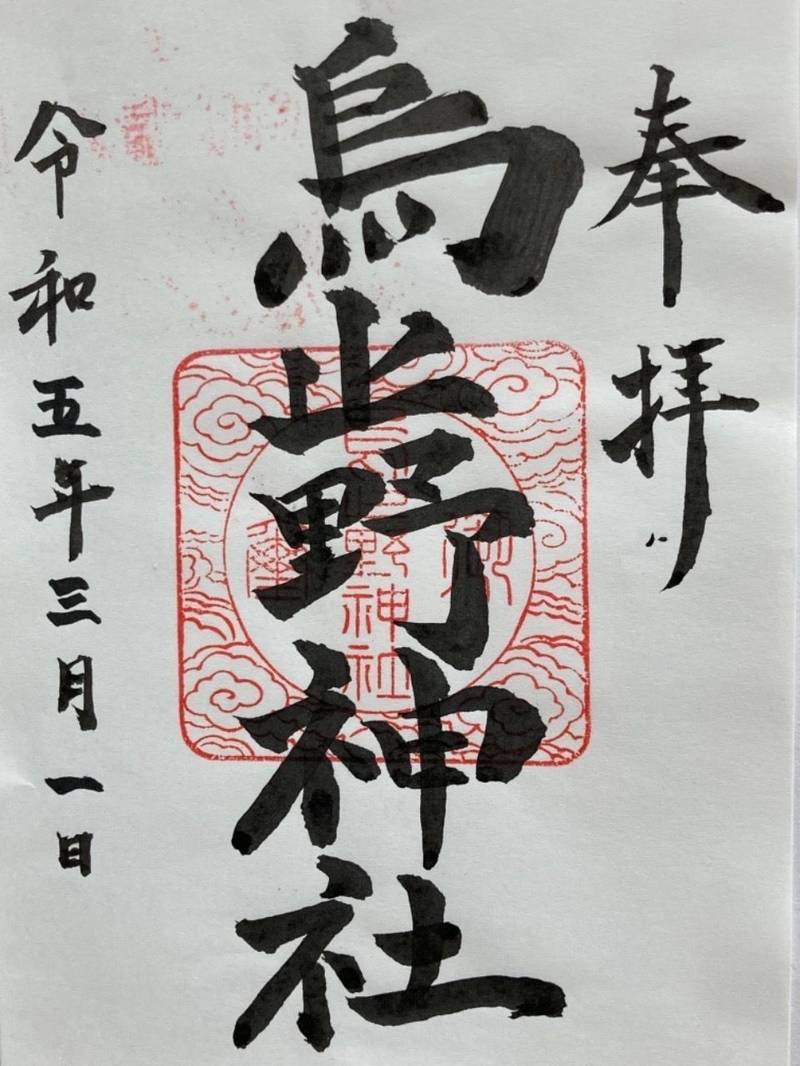 奉拝
烏止野神社
令和五年三月一日
御
烏止野神社